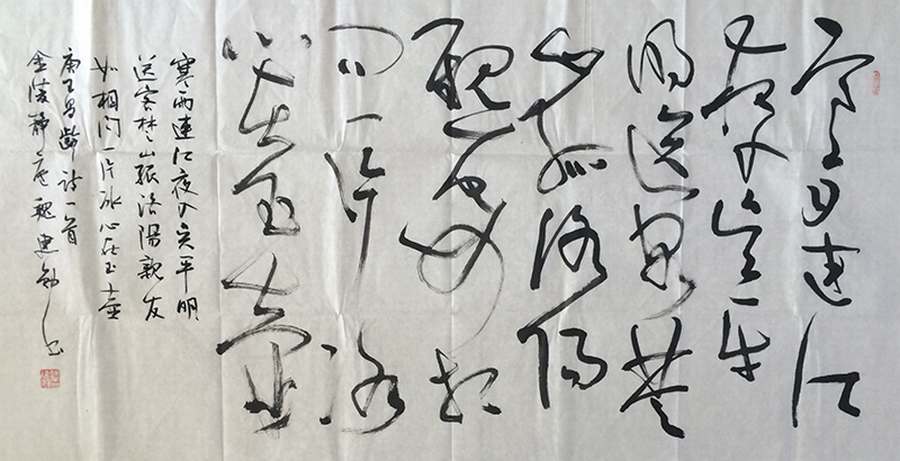 寒雨連江
夜入吴平
明送客楚
山孤洛陽
親友如相
问一片冰
心在玉壶
寒雨連江夜入吴平明
送客楚山孤洛陽親友
如相问一片冰心在玉壶
唐王昌龄诗一首
金陵静庵魏书